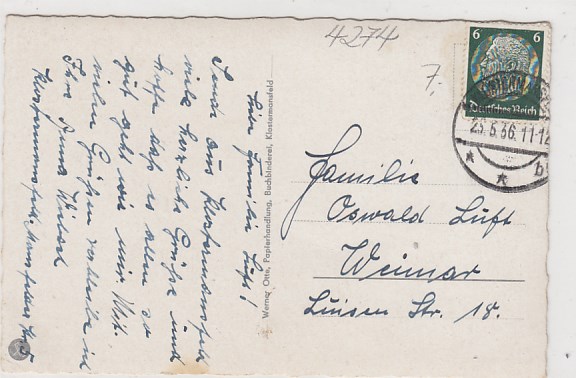 4274
7.
6 6
Deutsches Reich
25.5.36.11-12
b
Familie
Oswald Luft
Weimar
Luisen Str. 18.
Werner Otte, Papierhandlung, Buchbinderei, Klostermansfeld
Liebe Familie Luft!
aus Klostermansfeld
viele herzliche Grüße und
hoffe daß es allen so
gut geht wie mir. Mit
vielen Grüßen verbleibe ich
Ihre Anna
Klostermansfeld